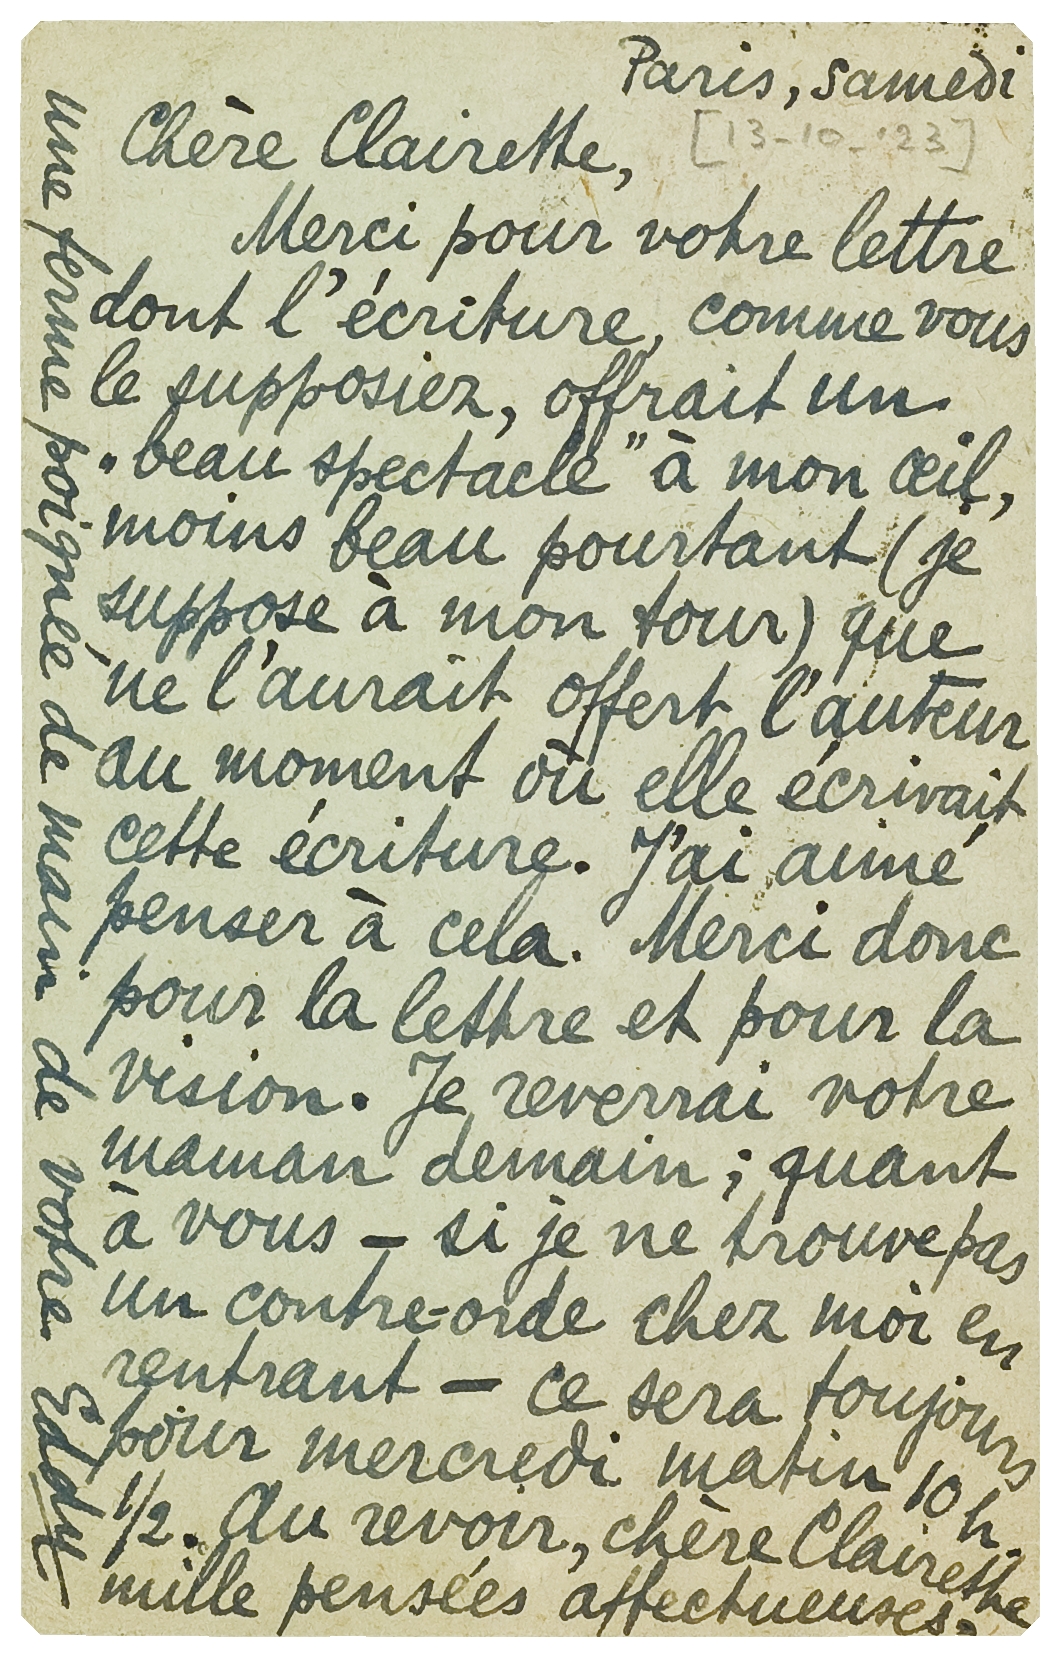 Paris, samedi
[13-10-'23]
Chère Clairette,
Merci pour votre lettre
dont l'écriture, comme vous
le supposiez, offrait un
"beau spectacle" à mon œil,
moins beau pourtant (je
suppose à mon tour) que
ne l'aurait offert l'auteur
au moment où elle écrivait
cette écriture. J'ai aimé
penser à cela. Merci donc
pour la lettre et pour la
vision. Je reverrai votre
maman demain; quant
à vous — si je ne trouve pas
un contre-orde chez moi en
rentrant — ce sera toujours
pour mercredi matin 10 h.
1/2. Au revoir, chère Clairette
mille pensées affectueuses,
une ferme poignée de main de votre Eddy